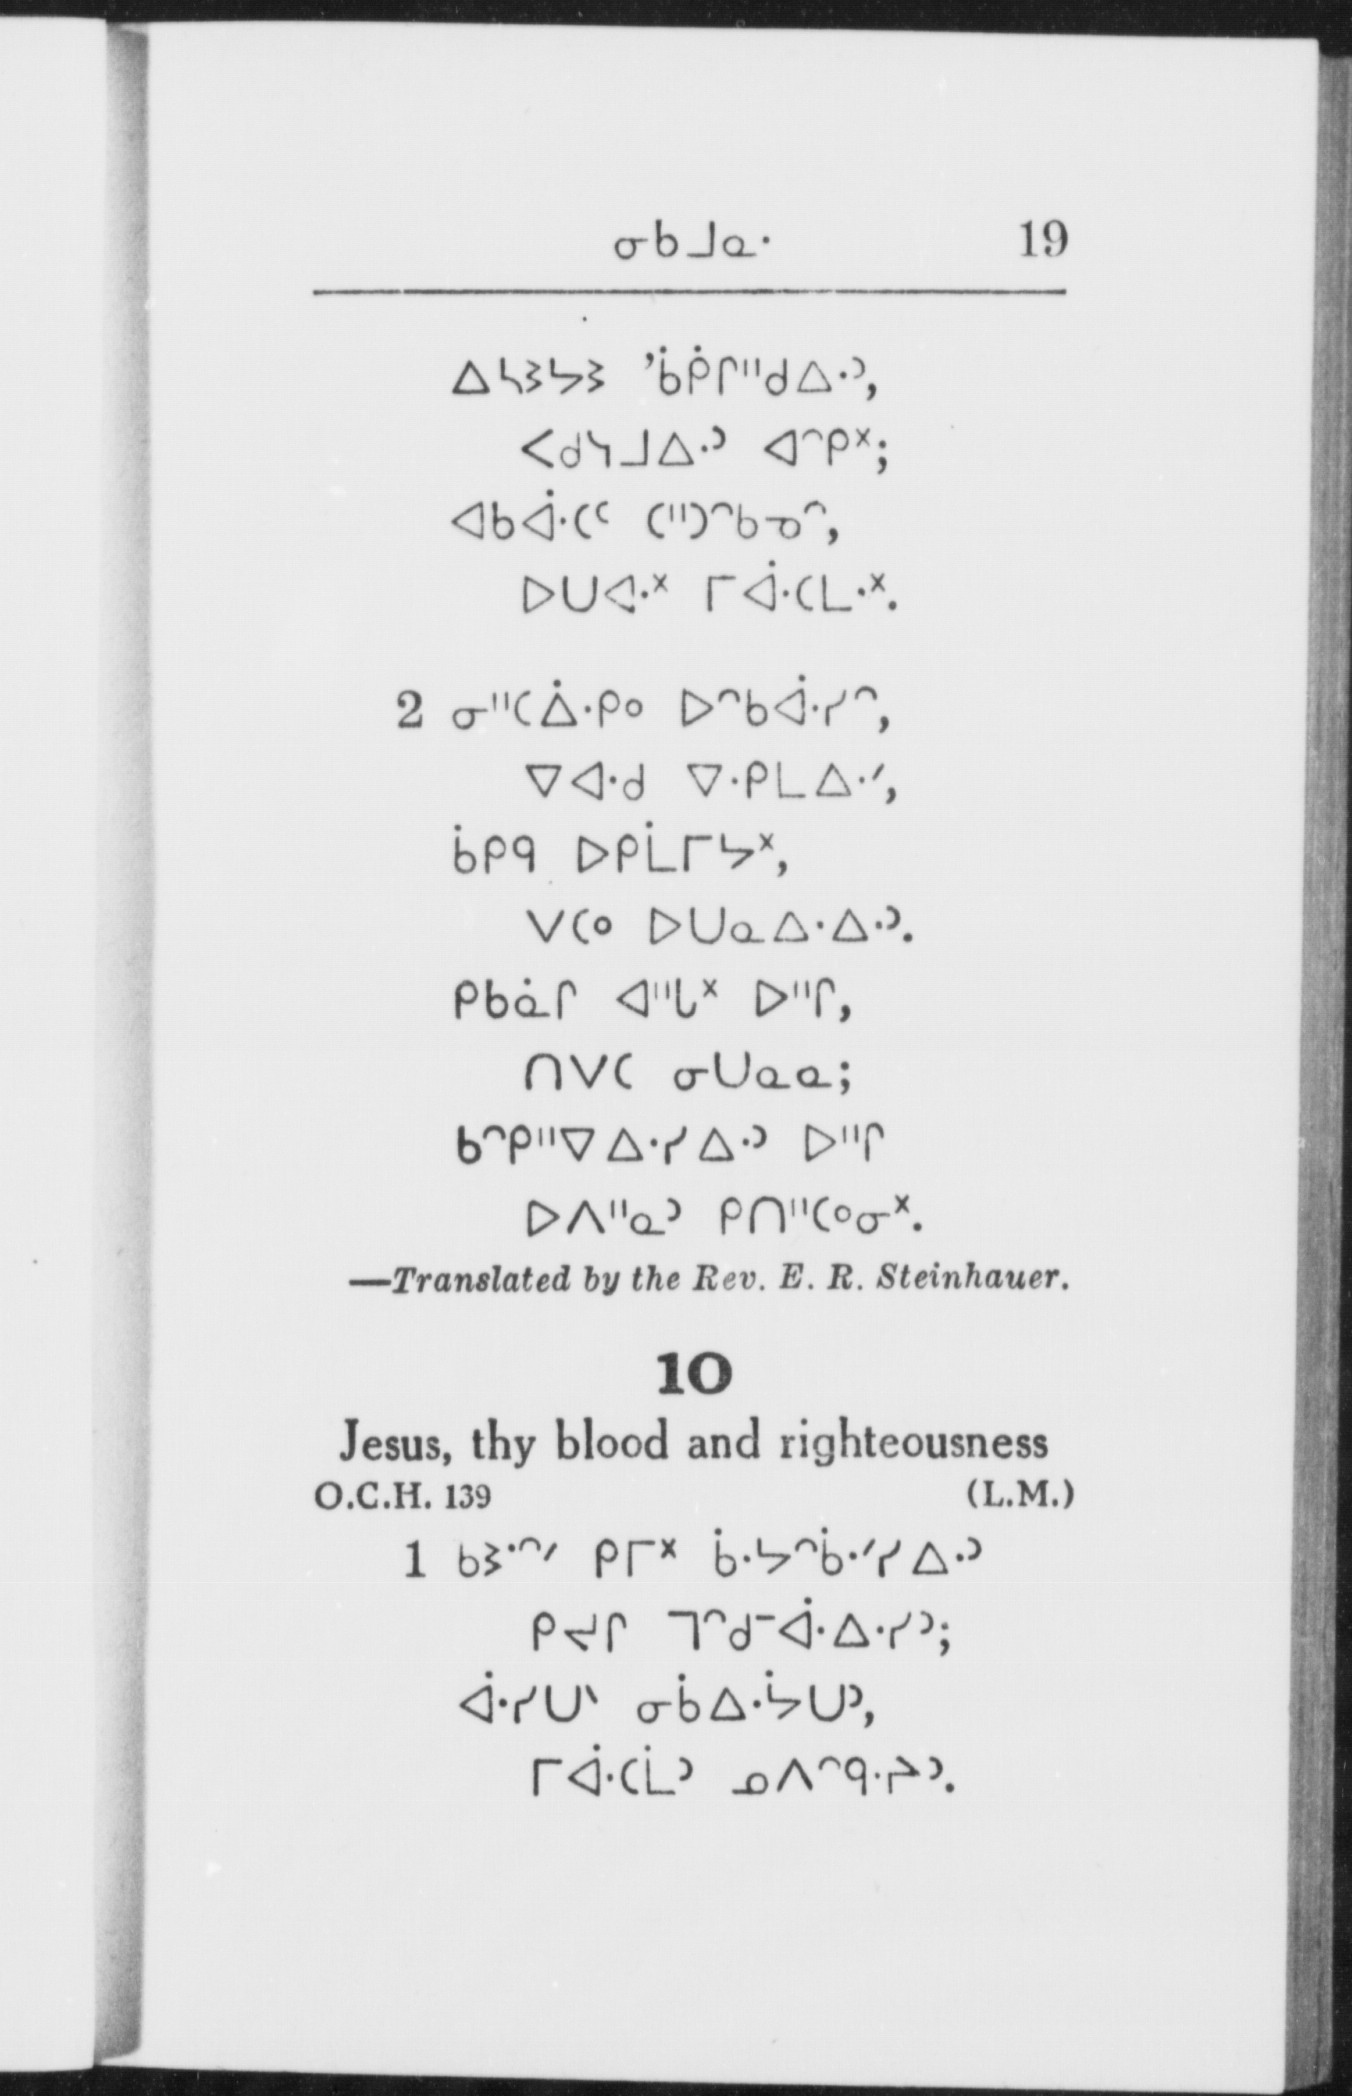 ᓂᑲᒧᓇᐧ 19
ᐃᓴᕒᔭᕒ ’ᑳᑮᒋᐦᑯᐃᐧᐣ,
ᐸᑯᓭᒧᐃᐧᐣ ᐊᐢᑭᕽ;
ᐊᑲᐋᐧᑕᕪ ᑕᐦᑐᐢᑲᓀᐢ,
ᐅᑌᐊᐧᕽ ᒥᐋᐧᑕᒪᐧᕽ.
2 ᓂᐦᑕᐄᐧᑭᐤ ᐅᐢᑲᐋᐧᓯᐢ,
ᐁᐊᐧᑯ ᐁᐧᑭᒪᐃᐧᐟ,
ᑳᑭᑫ ᐅᑭᒫᒥᔭᕽ,
ᐯᑕᐤ ᐅᑌᓇᐃᐧᐃᐧᐣ.
ᑭᑲᓈᒋ ᐊᐦᒐᕽ ᐅᐦᒋ,
ᑎᐯᑕ ᓂᑌᓇᓇ;
ᑲᐢᑭᐦᐁᐃᐧᓯᐃᐧᐣ ᐅᐦᒋ
ᐅᐱᐦᓇᐣ ᑭᑎᐦᑕᐤᓂᕽ.
—Translated by the Rev. E. R. Steinhauer.
10
Jesus, thy blood and righteousness
O.C.H. 139 (L.M.)
1 ᑲᕒᐧᐢᐟ ᑭᒥᕽ ᑳᐧᔭᐢᑳᐧᐟᓯᐃᐧᐣ
ᑭᔪᒋ ᒣᐢᑯᐨᐋᐧᐃᐧᓯᐣ;
ᐋᐧᓯᑌᐠ ᓂᑳᐃᐧᔮᑌᐣ,
ᒥᐋᐧᑕᒫᐣ ᓄᐱᐢᑫᐧᓯᐣ.